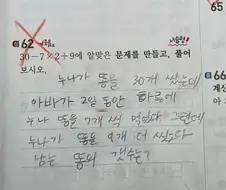 65
62 서술형
30-7×2+9에 알맞은 문제를 만들고, 풀어
보시오.
누나가 똥을 30개 쌌는데
아빠가 2일 동안 하루에
누나 똥을 7개 씩 먹었다 그런데
누나가 똥을 9개 더 쌌다
남는 똥의 갯수는?
66
계산